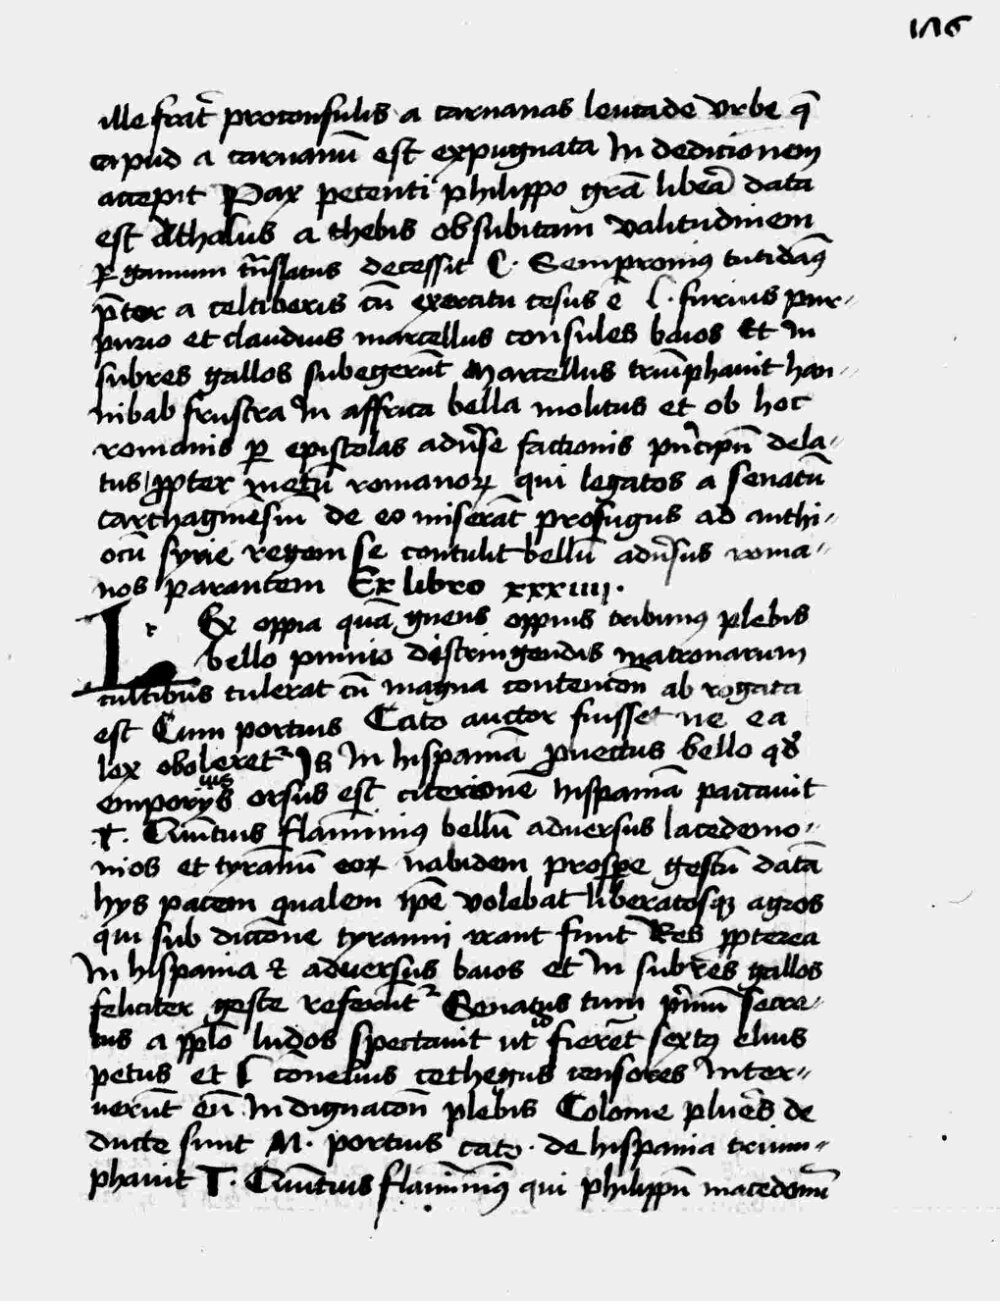 176
ille frat̄ proconsulis a carnanas leucade vrbe q̄
capud a carnanū est expugnata In dedicionem
accepit Pax petenti philippo grā libeā data
est Athalus a thebis ob subitam valitudinem
ꝑgamum trāslatus decessit C. Sempronius tutidāꝰ
p̄tor a celtiberis cū exercitu cesus ē L. furius pur-
purio et claudius marcellus consules baios Et In
subres gallos subegerūt Marcellus triūphauit han-
nibal frustra In affrica bella molitus et ob hoc
romanis ꝑ epistolas adūse factionis p̄ncipū dela-
tus ꝓpter metū romanoꝝ qui legatos a senatū
carthaginēsiū de eo miserāt profugus ad anthi-
ocū syrie regem se contulit bellū adūsus roma-
nos parantem Ex libro xxxiiii.
Lex oppia quā gneus oppius tribunꝰ plebis
bello punico distringendis matronarum
cultibus tulerat cū magna contencōn ab rogata
est Cum portius Cato auctor fuisset ne ea
lex oboleret᷑ Is In hispaniā ꝓuectus bello qd̄
emporijs orsus est citerionē hispaniā pacauit
T. Quintius flaminiꝰ bellū adversus lacedemo-
nios et tyrannū eoꝝ nabidem prospe gestū datā
hys pacem qualem ipē volebat liberatosqꝫ agros
qui sub dicione tyranni erant sunt Res ꝓpterea
In hispania et adversus baios et In subres gallos
feliciter geste referūt᷑ Senatus tum p̄mū secre-
tus a pplo ludos spectauit ut id fieret sextꝰ elius
petus et L cornelius cethegus censores Inter-
uerūt cū Indignacōn plebis Colonie plures de
ducte sunt M. portius cato. de hispania trium-
phauit T. Quintius flaminiꝰ qui philippū macedonū